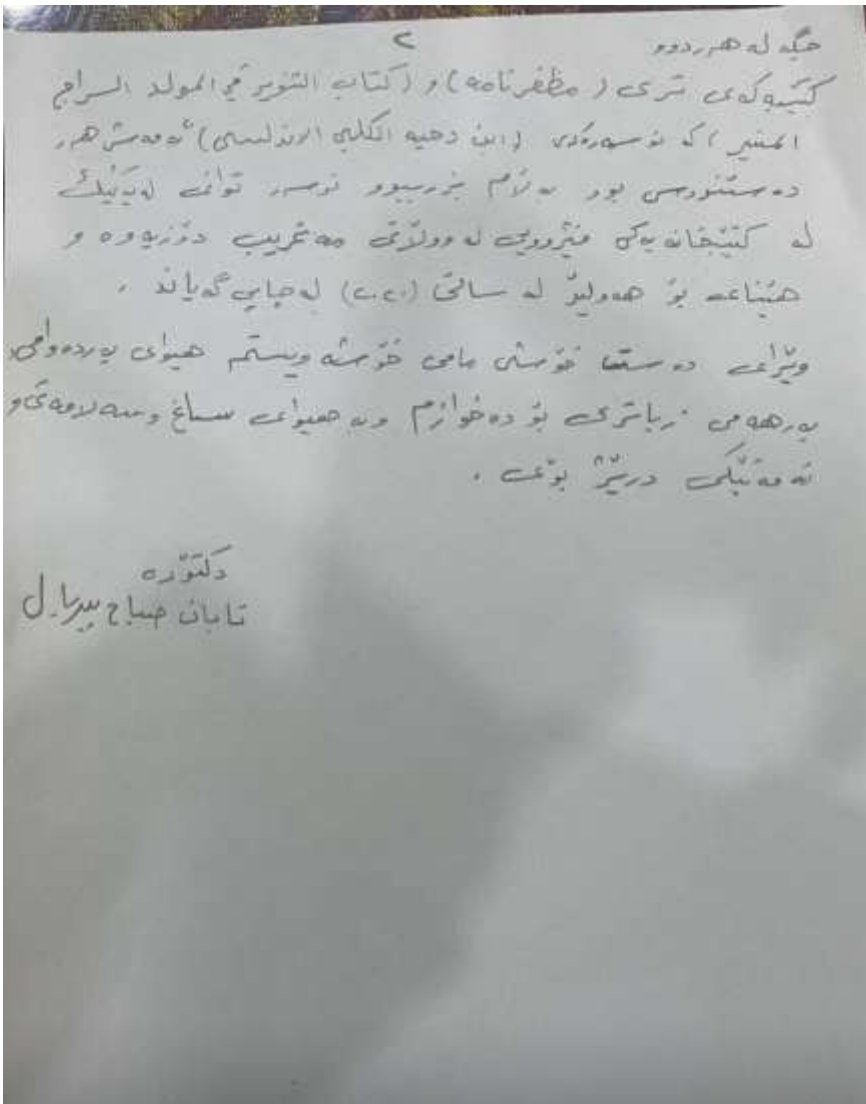 ٢
جگه له هەردوو
کتێبەکەی تری (مظفرنامه) و (کتاب التنویر في المولد السراج
المنیر) که نوسەرەکەی (ابن دحیه الکلبي الاندلسی) ئەمەش هەر
دەستنووس بوو بەڵام بزربیوو نوسەر توانی لە یەکێک
له کتێبخانەیەکی مێژوویی له ووڵاتی مەغریب دۆزیەوە و
هێنایە بۆ هەولێر له ساڵی (٢٠٢٠) لە چاپی گەیاند .
وێڕای دەست خۆشی مامی خۆشەویستم هیوای بەردەوامی
بەرهەمی زیاتری بۆ دەخوازم وبە هیوای ساغ وسەلامەتی و
تەمەنێکی درێژ بۆی .
دکتۆرە
تابان صباح